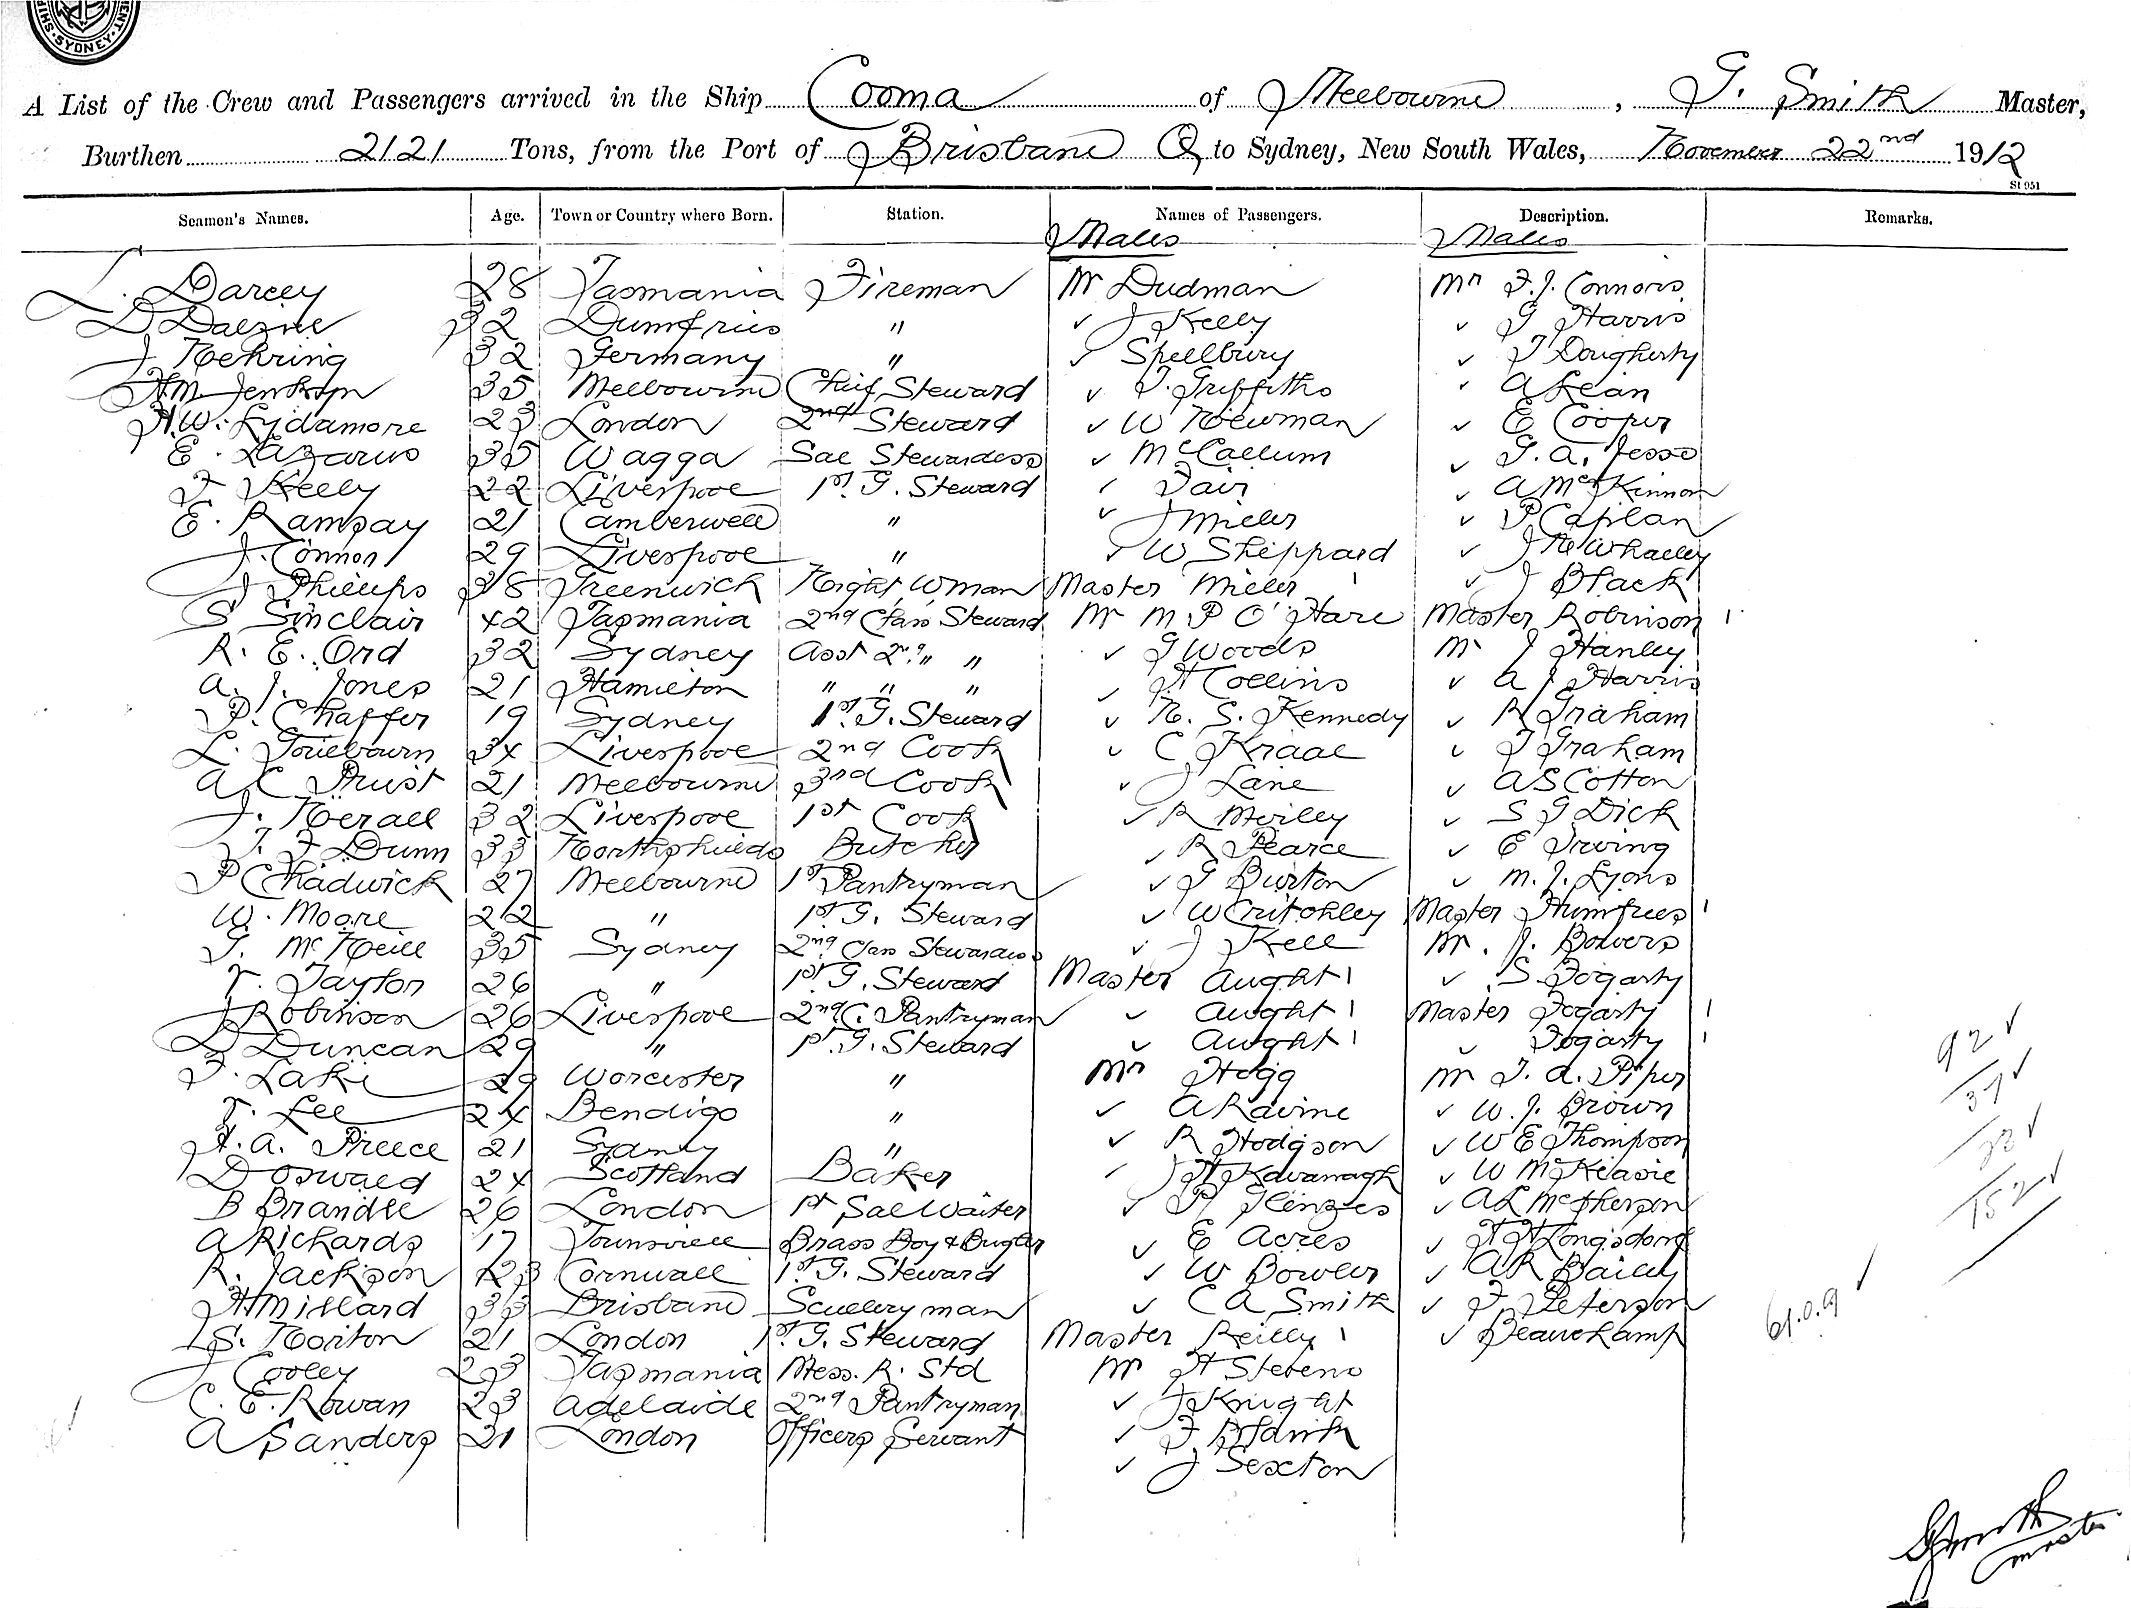 SYDNEY
A List of the Crew and Passengers arrived in the Ship Cooma of Melbourne, G. Smith Master,
Burthen 2121 Tons, from the Port of Brisbane Q to Sydney, New South Wales, November 22nd 1912
St 951
Seamen's Names. Age. Town or Country where Born. Station. Names of Passengers. Description. Remarks.
Males Males
L. Darcey 28 Tasmania Fireman Mr Dudman Mr F. J. Connors
D Dalziel 32 Dumfries " ✓ J Kelly ✓ G Harris
J Nehring 32 Germany " ✓ Spellbury ✓ T Dougherty
H.M. Jenkyn 35 Melbourne Chief Steward ✓ T. Griffiths ✓ A Lean
H.W. Lydamore 23 London 2nd Steward ✓ W Newman ✓ E Cooper
E. Lazarus 35 Wagga Sal Stewardess ✓ McCallum ✓ T. A. Jesse
F Kelly 22 Liverpool 1st G. Steward ✓ Fair ✓ A McKinnon
E. Ramsay 21 Camberwell " ✓ J Miller ✓ P Caplan
J. Connor 29 Liverpool " ✓ W Sheppard ✓ J N Whalley
J Phillips 28 Greenwick Night Wman Master Miller 1 ✓ J Black
S Sinclair 42 Tasmania 2nd Class Steward Mr M P O'Hare Master Robinson 1
R. E. Ord 32 Sydney Asst 2nd " " ✓ G Woods Mr J Hanley
A. J. Jones 21 Hamilton " " " ✓ H Collins ✓ A J Harris
P. Chaffer 19 Sydney 1st G. Steward ✓ N. S. Kennedy ✓ R Graham
L. Goulbourn 34 Liverpool 2nd Cook ✓ C Kraal ✓ J Graham
A C Prust 21 Melbourne 3rd Cook ✓ J Lane ✓ A S Cotton
J. Nerall 32 Liverpool 1st Cook ✓ R Meilly ✓ S G Dick
T. F Dunn 33 Northshields Butcher ✓ R Pearce ✓ E Irving
P Chadwick 27 Melbourne 1st Pantryman ✓ G Burton ✓ M. J. Lyons
W. Moore 22 " 1st G. Steward ✓ W Critchley Master Humfries 1
G. McNeill 35 Sydney 2nd Class Stewardess ✓ J Kell Mr. J. Bowers
T. Taylor 26 " 1st G. Steward Master Aught 1 ✓ S Fogarty
J Robinson 26 Liverpool 2nd C. Pantryman ✓ Aught 1 Master Fogarty 1
D Duncan 29 " 1st G. Steward ✓ Aught 1 ✓ Fogarty 1
F. Lake 29 Worcester " Mr Hogg Mr T. A. Piper
T. Lee 24 Bendigo " ✓ A Ravine ✓ W. J. Brown
H. A. Preece 21 Sydney " ✓ R Hodgson ✓ W E Thompson
D Oswald 24 Scotland Baker ✓ J H Kavanagh ✓ W McKlasie
B Brandle 26 London 1st Sal Waiter ✓ P Henzes ✓ A L McPherson
A Richards 17 Townsville Brass Boy & Bugler ✓ E Acres ✓ H H Longsdorf
R. Jackson 23 Cornwall 1st G. Steward ✓ W Bowler ✓ A R Bailey
H Millard 33 Brisbane Sculleryman ✓ C A Smith ✓ F Peterson
S. Norton 21 London 1st G. Steward Master Reilly 1 ✓ Beauchamp
J Cooley 23 Tasmania Mess. R. Std Mr H Stevens
C. E. Rowan 23 Adelaide 2nd Pantryman ✓ J Knight
A Sanders 21 London Officers Servant ✓ F
✓ J Sexton
92 ✓
37 ✓
23 ✓
152 ✓
61.0.9 ✓
G Smith
Master